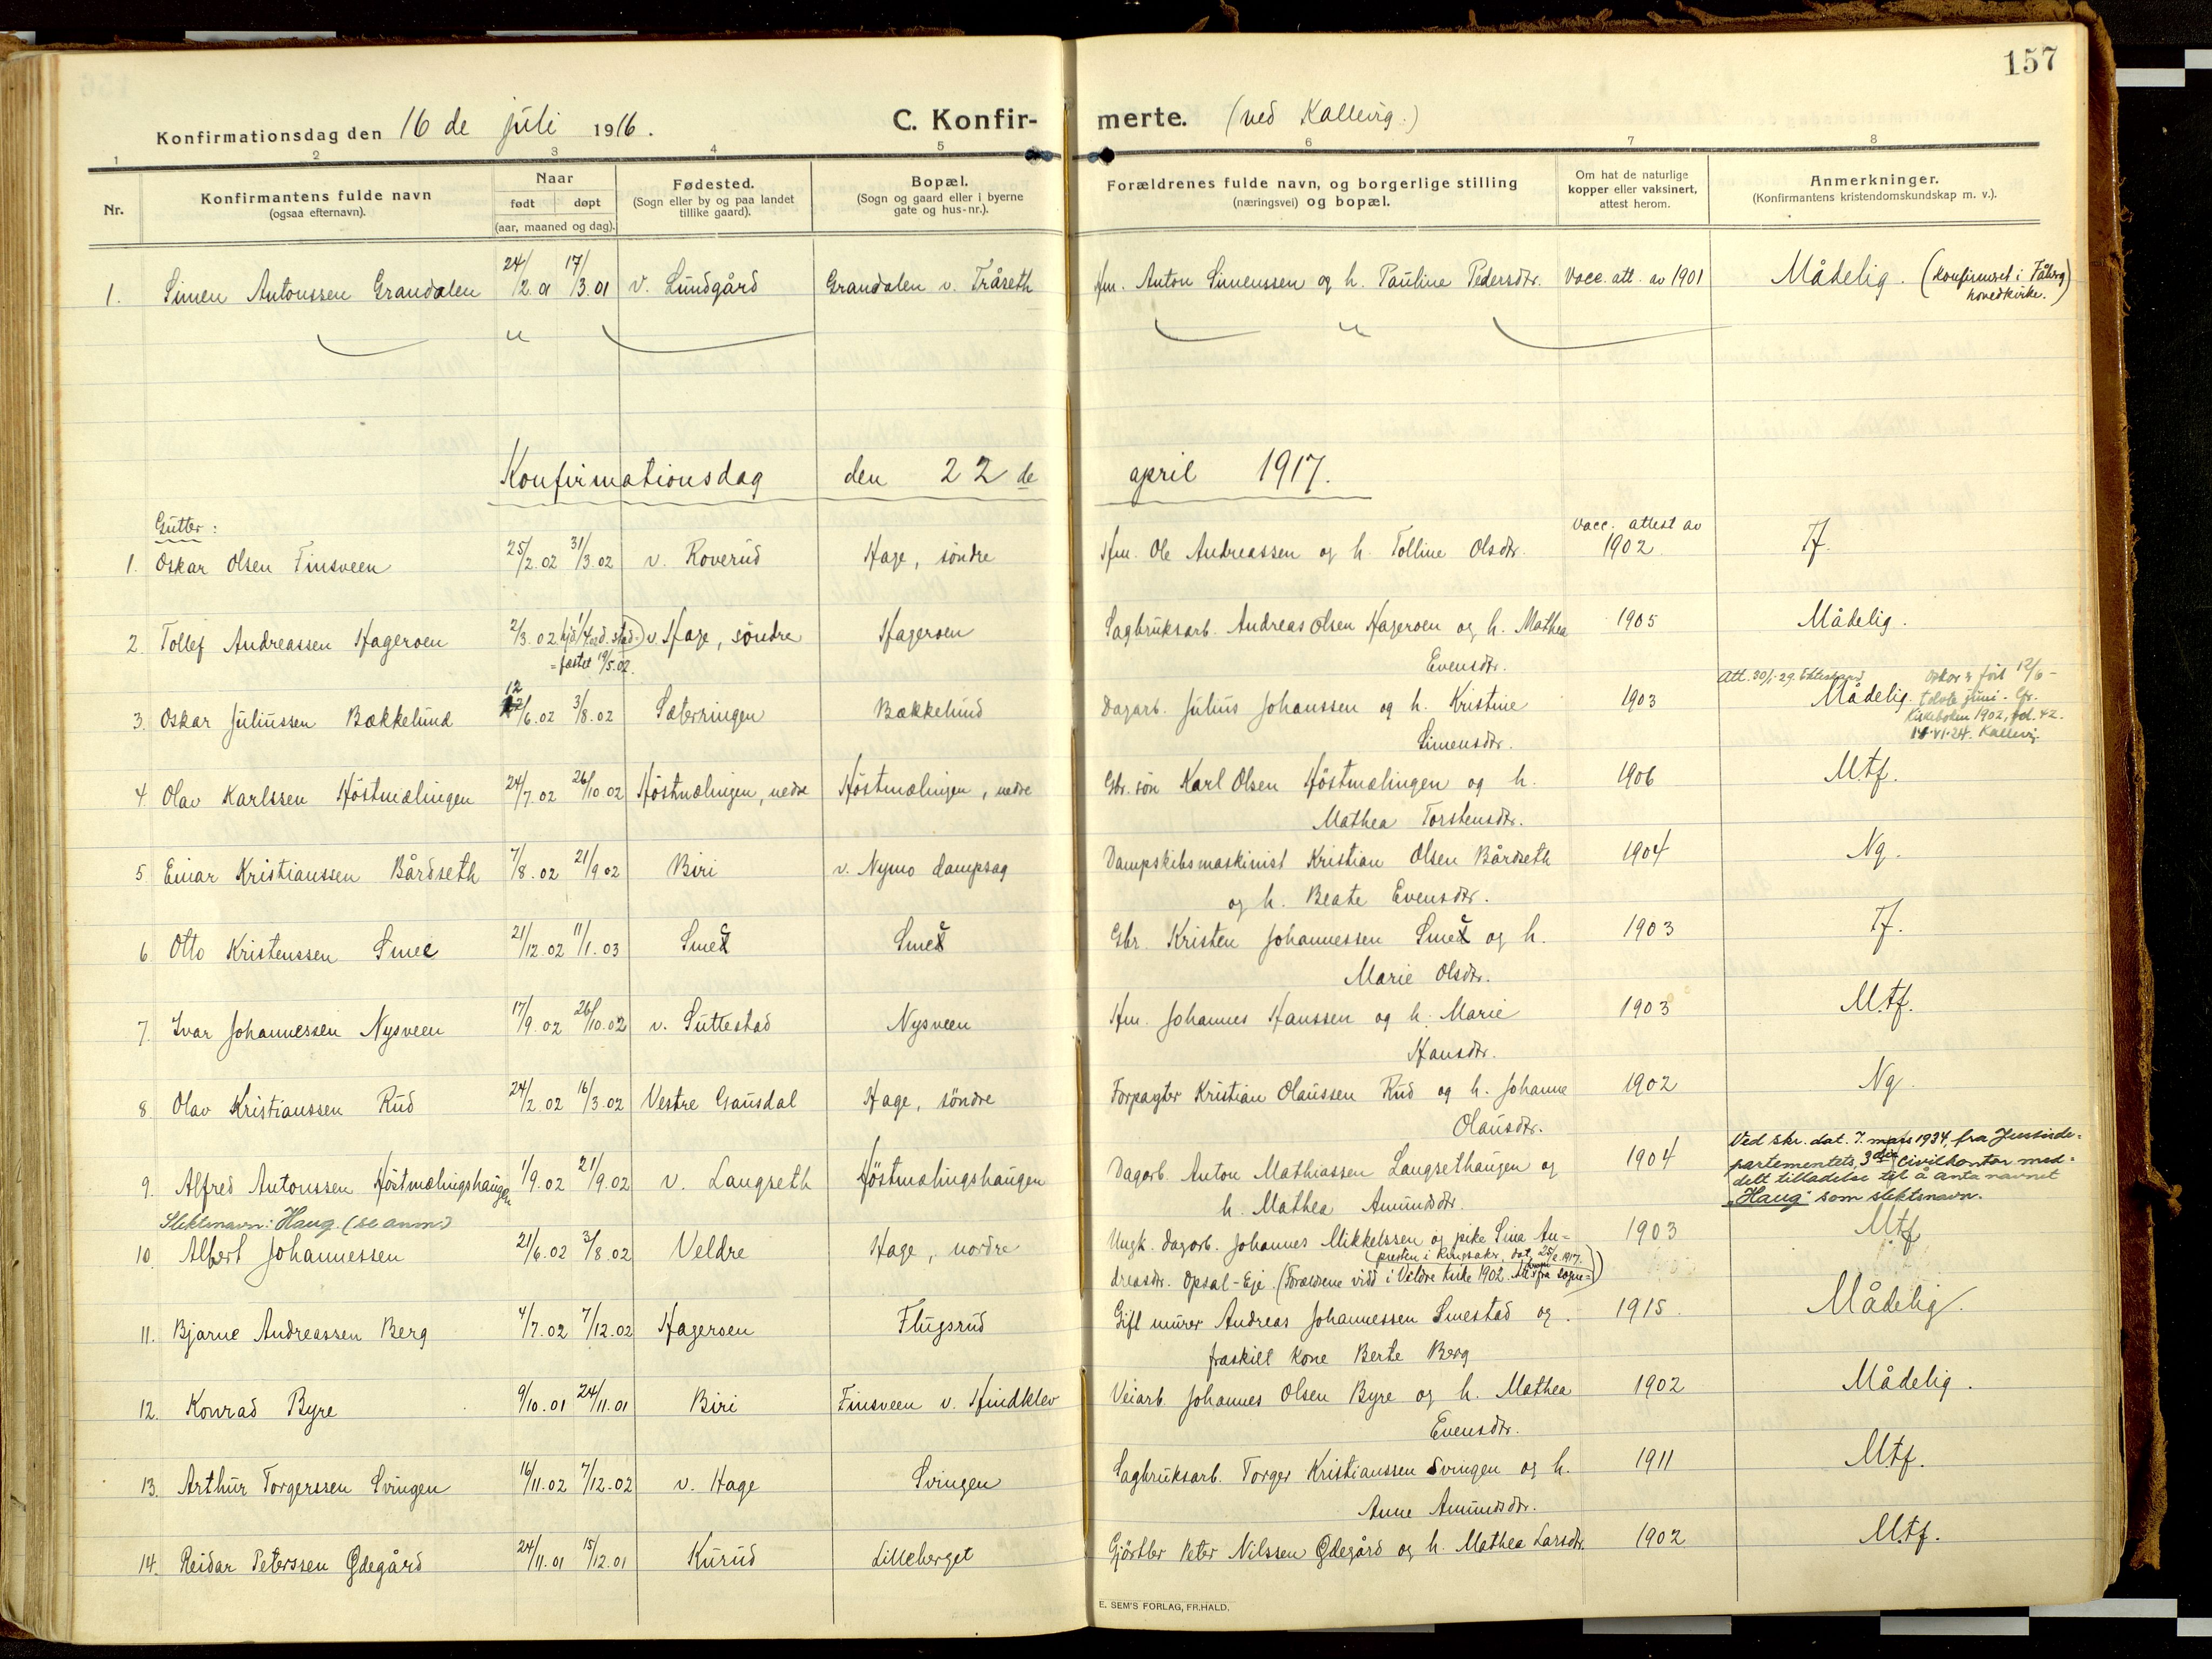 157
Konfirmationsdag den 16 de juli 1916. C. Konfir- merte. (ved Kallevig.)
1 2 3 4 5 6 7 8
Nr. Konfirmantens fulde navn (ogsaa efternavn). Naar født døpt (aar, maaned og dag). Fødested. (Sogn eller by og paa landet tillike gaard). Bopæl. (Sogn og gaard eller i byerne gate og hus-nr.). Forældrenes fulde navn, og borgerlige stilling (næringsvei) og bopæl. Om hat de naturlige kopper eller vaksinert, attest herom. Anmerkninger. (Konfirmantens kristendomskundskap m. v.).
1. Simen Antonssen Grandalen 24/2.01 17/3.01 v. Lundgård Grandalen v. Tråseth Hm. Anton Simenssen og h. Pauline Pedersdtr. Vacc. att. av 1901 Mådelig. (Konfirmeret i Fåberg hovedkirke.)
Konfirmationsdag den 22 de april 1917.
Gutter:
1. Oskar Olsen Finsveen 25/2.02 31/3.02 v. Roverud Hage, søndre Hm. Ole Andreassen og h. Tolline Olsdtr. Vacc. attest av 1902 Tf.
2. Tollef Andreassen Hageroen 2/3.02 hjd. 1/4 stad- v. Hage, søndre Hageroen Sagbruksarb. Andreas Olsen Hageroen og h. Mathea 1905 Mådelig.
=fæstet 19/5.02. Evensdtr.
3. Oskar Juliussen Bækkelund 12/6.02 3/8.02 Sæterringen Bækkelund Dagarb. Julius Johanssen og h. Kristine 1903 Att. 30/1-29. Mådelig. Oskar er født 12/6 - tolvte juni. Cfr.
Simensdtr. Kirkeboken 1902, fol. 42. 14.VI.24. Kallevig.
4. Olav Karlssen Høstmælingen 24/7.02 26/10 02 Høstmælingen, nedre Høstmælingen, nedre Gbr. søn Karl Olsen Høstmælingen og h. 1906 Mtf.
Mathea Torstensdtr.
5. Einar Kristianssen Bårdseth 7/8.02 21/9 02 Biri v. Nymo dampsag Dampskibsmaskinist Kristian Olsen Bårdseth 1904 Ng.
og h. Beate Evensdtr.
6. Otto Kristenssen Smee Gbr. Kristen Johannessen 21/12.02 11/1.03 og h. 1903 Tf.
Marie Olsdtr.
7. Ivar Johannessen Nysveen 17/9.02 26/10.02 v. Suttestad Nysveen Hm. Johannes Hanssen og h. Marie 1903 Mtf.
Hansdtr.
8. Olav Kristianssen Rud 24/2.02 16/3.02 Vestre Gausdal Hage, søndre Forpagter Kristian Olaussen Rud og h. Johanne 1902 Ng.
Olausdtr.
9. Alfred Antonssen Høstmælingshaugen 1/9.02 21/9.02 v. Langseth Høstmælingshaugen Dagarb. Anton Mathiassen Langsethaugen og 1904 Ved skr. dat. 7. mars 1934, fra Justisde-
partementets 3dje civilkontor med-
delt tilladelse til å anta navnet
"Haug" som slektsnavn.
Slektsnavn: Haug. (se anm.) h. Mathea Amundsdtr.
10. Albert Johannessen 21/6.02 3/8.02 Veldre Hage, nordre Ungk. dagarb. Johannes Mikkelssen og pike Sina An- 1903 Mtf.
dreasdtr. Opsal-Eje. (Forældrene vidd i Veldre kirke 1902. Att. fra sogne-
presten i Ringsaker, dat. 25/2 1917.)
11. Bjarne Andreassen Berg 4/7.02 7/12.02 Hageroen Flugsrud Gift murer Andreas Johannessen Smestad og 1915. Mådelig.
fraskilt kone Berte Berg
12. Konrad Byre 9/10.01 24/11.01 Biri Finsveen v. Hindklev Veiarb. Johannes Olsen Byre og h. Mathea 1902 Mådelig.
Evensdtr.
13. Arthur Torgerssen Svingen 16/11.02 7/12.02 v. Hage Svingen Sagbruksarb. Torger Kristianssen Svingen og h. 1911 Mtf.
Anne Amundsdtr.
14. Reidar Peterssen Ødegård 24/11.01 15/12.01 Kurud Lilleberget Gjørtler Peter Nilssen Ødegård og h. Mathea Larsdtr. 1902 Mtf.
E. SEM'S FORLAG, FR.HALD.